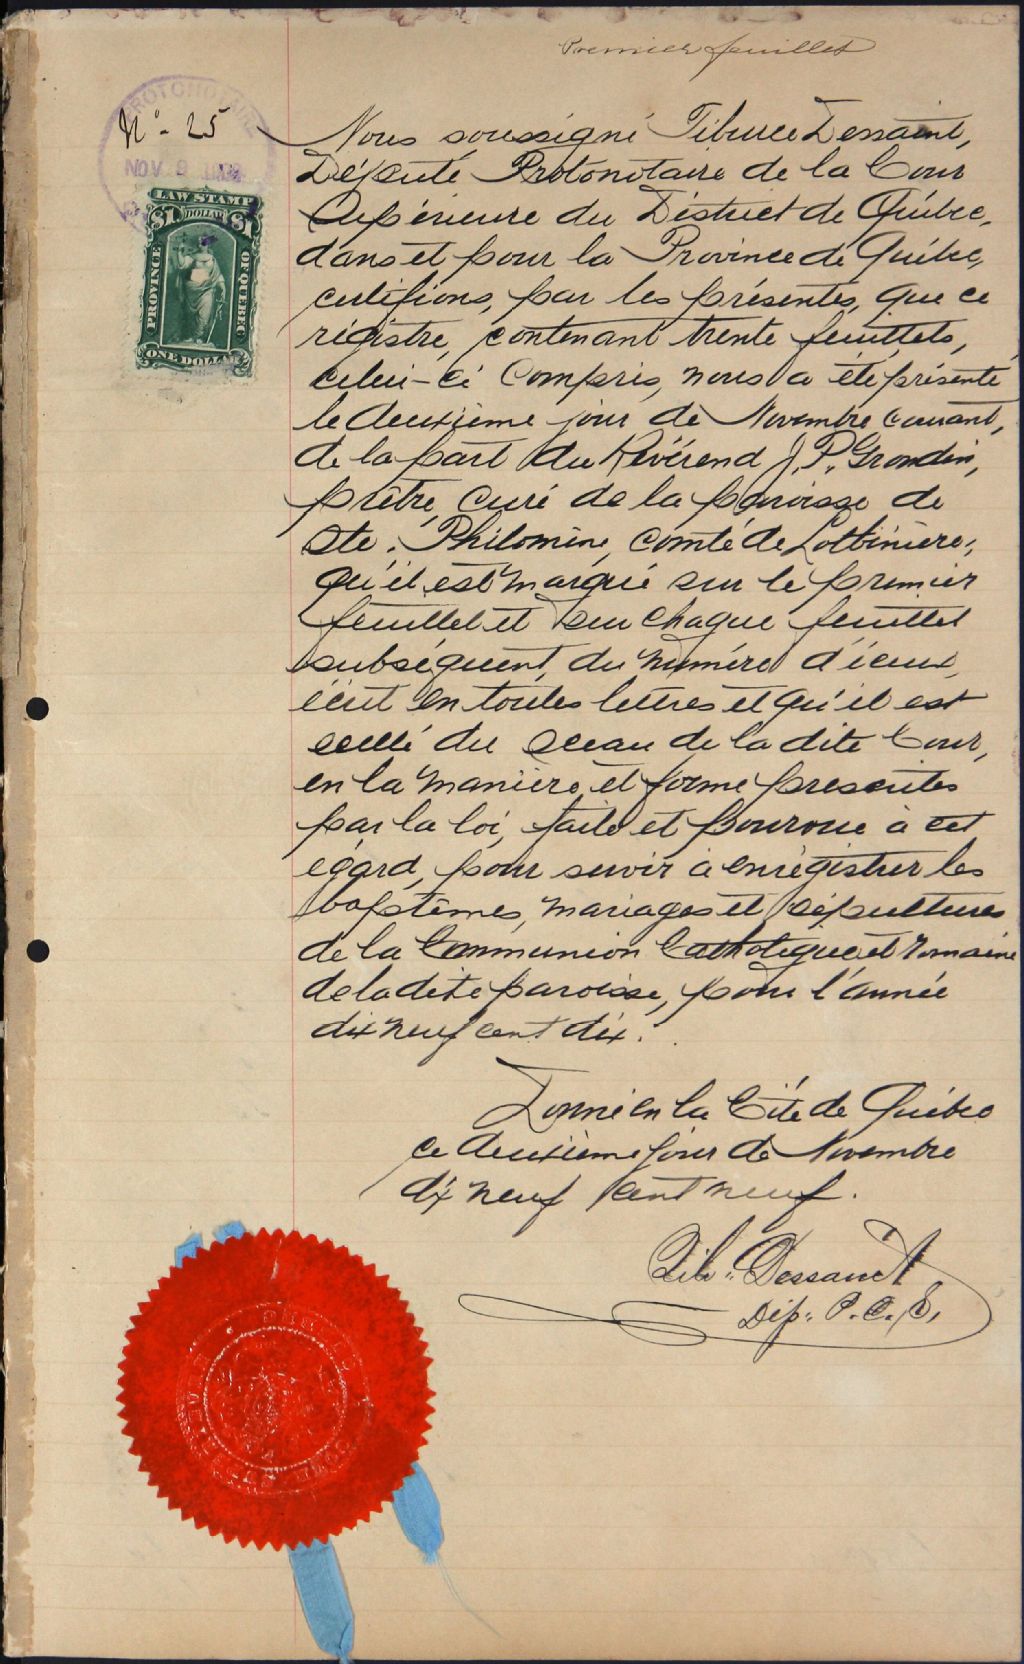 Premier feuillet
No. 25
PROTONOTAIRE
NOV 9
LAW STAMP
$1 DOLLAR $1
PROVINCE
OF QUEBEC
ONE DOLLAR
Nous soussigné Tiburce Dessaint,
Député Protonotaire de la Cour
Supérieure du District de Québec,
dans et pour la Province de Québec,
certifions, par les présentes, que ce
régistre, contenant trente feuillets,
celui-ci compris, nous a été présenté
le deuxième jour de Novembre courant,
de la part du Révérend J. P. Grondin,
prêtre, curé de la paroisse de
Ste. Philomène, comté de Lotbinière,
qu'il est marqué sur le premier
feuillet et sur chaque feuillet
subséquent, du numéro d'iceux,
écrit en toutes lettres et qu'il est
scellé du sceau de la dite Cour,
en la manière et forme prescrites
par la loi, faite et pourvue à cet
égard, pour servir à enrégistrer les
baptêmes, mariages et sépultures
de la Communion Catholique et romaine
de la dite paroisse, pour l'année
dix neuf cent dix.
Donné en la Cité de Québec
ce deuxième jour de Novembre
dix neuf cent neuf.
Tib. Dessaint
Dép. P. C. S.